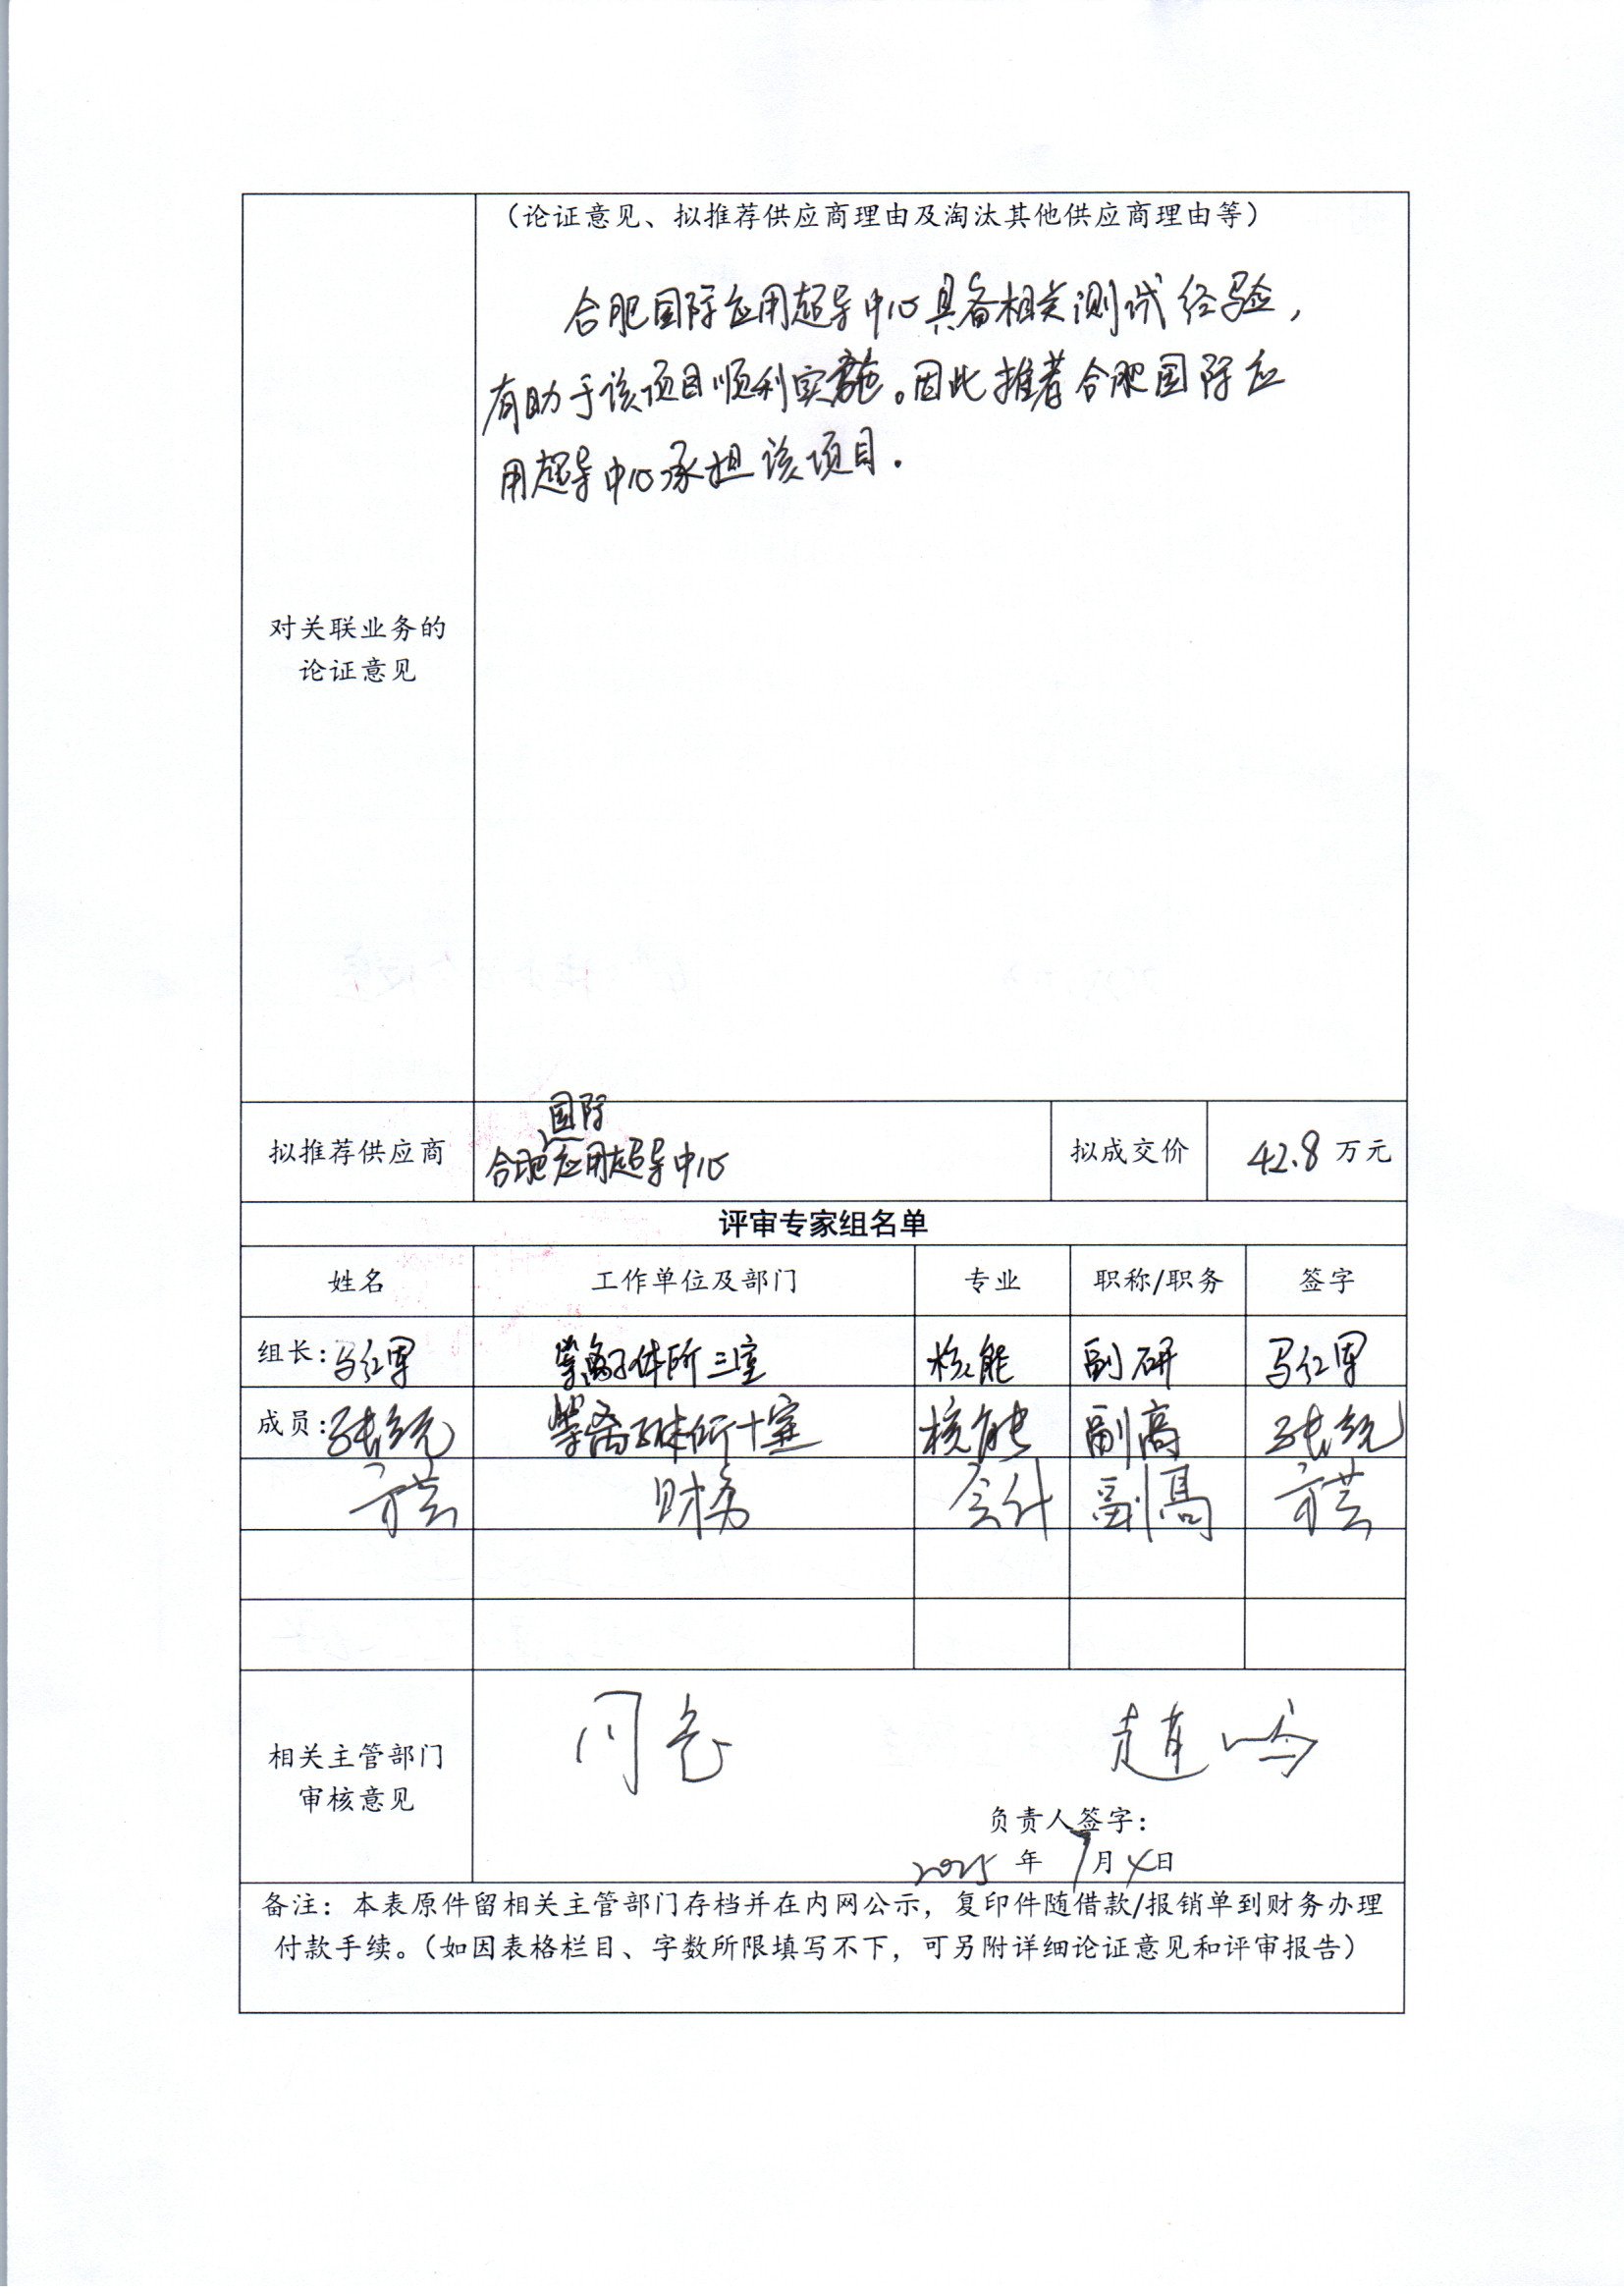 （论证意见、拟推荐供应商理由及淘汰其他供应商理由等）
合肥国际应用超导中心具备相关测试经验，
有助于该项目顺利实施。因此推荐合肥国际应
用超导中心承担该项目.
对关联业务的
论证意见
拟推荐供应商 合肥国际应用超导中心 拟成交价 42.8 万元
评审专家组名单
姓名 工作单位及部门 专业 职称/职务 签字
组长：马红军 等离子体所三室 核能 副研 马红军
成员：张统 等离子体所十室 核能 副高 张统
方芸 财务 会计 副高 方芸
相关主管部门
审核意见
同意
负责人签字：
2025 年 7月4日
备注：本表原件留相关主管部门存档并在内网公示，复印件随借款/报销单到财务办理
付款手续。（如因表格栏目、字数所限填写不下，可另附详细论证意见和评审报告）